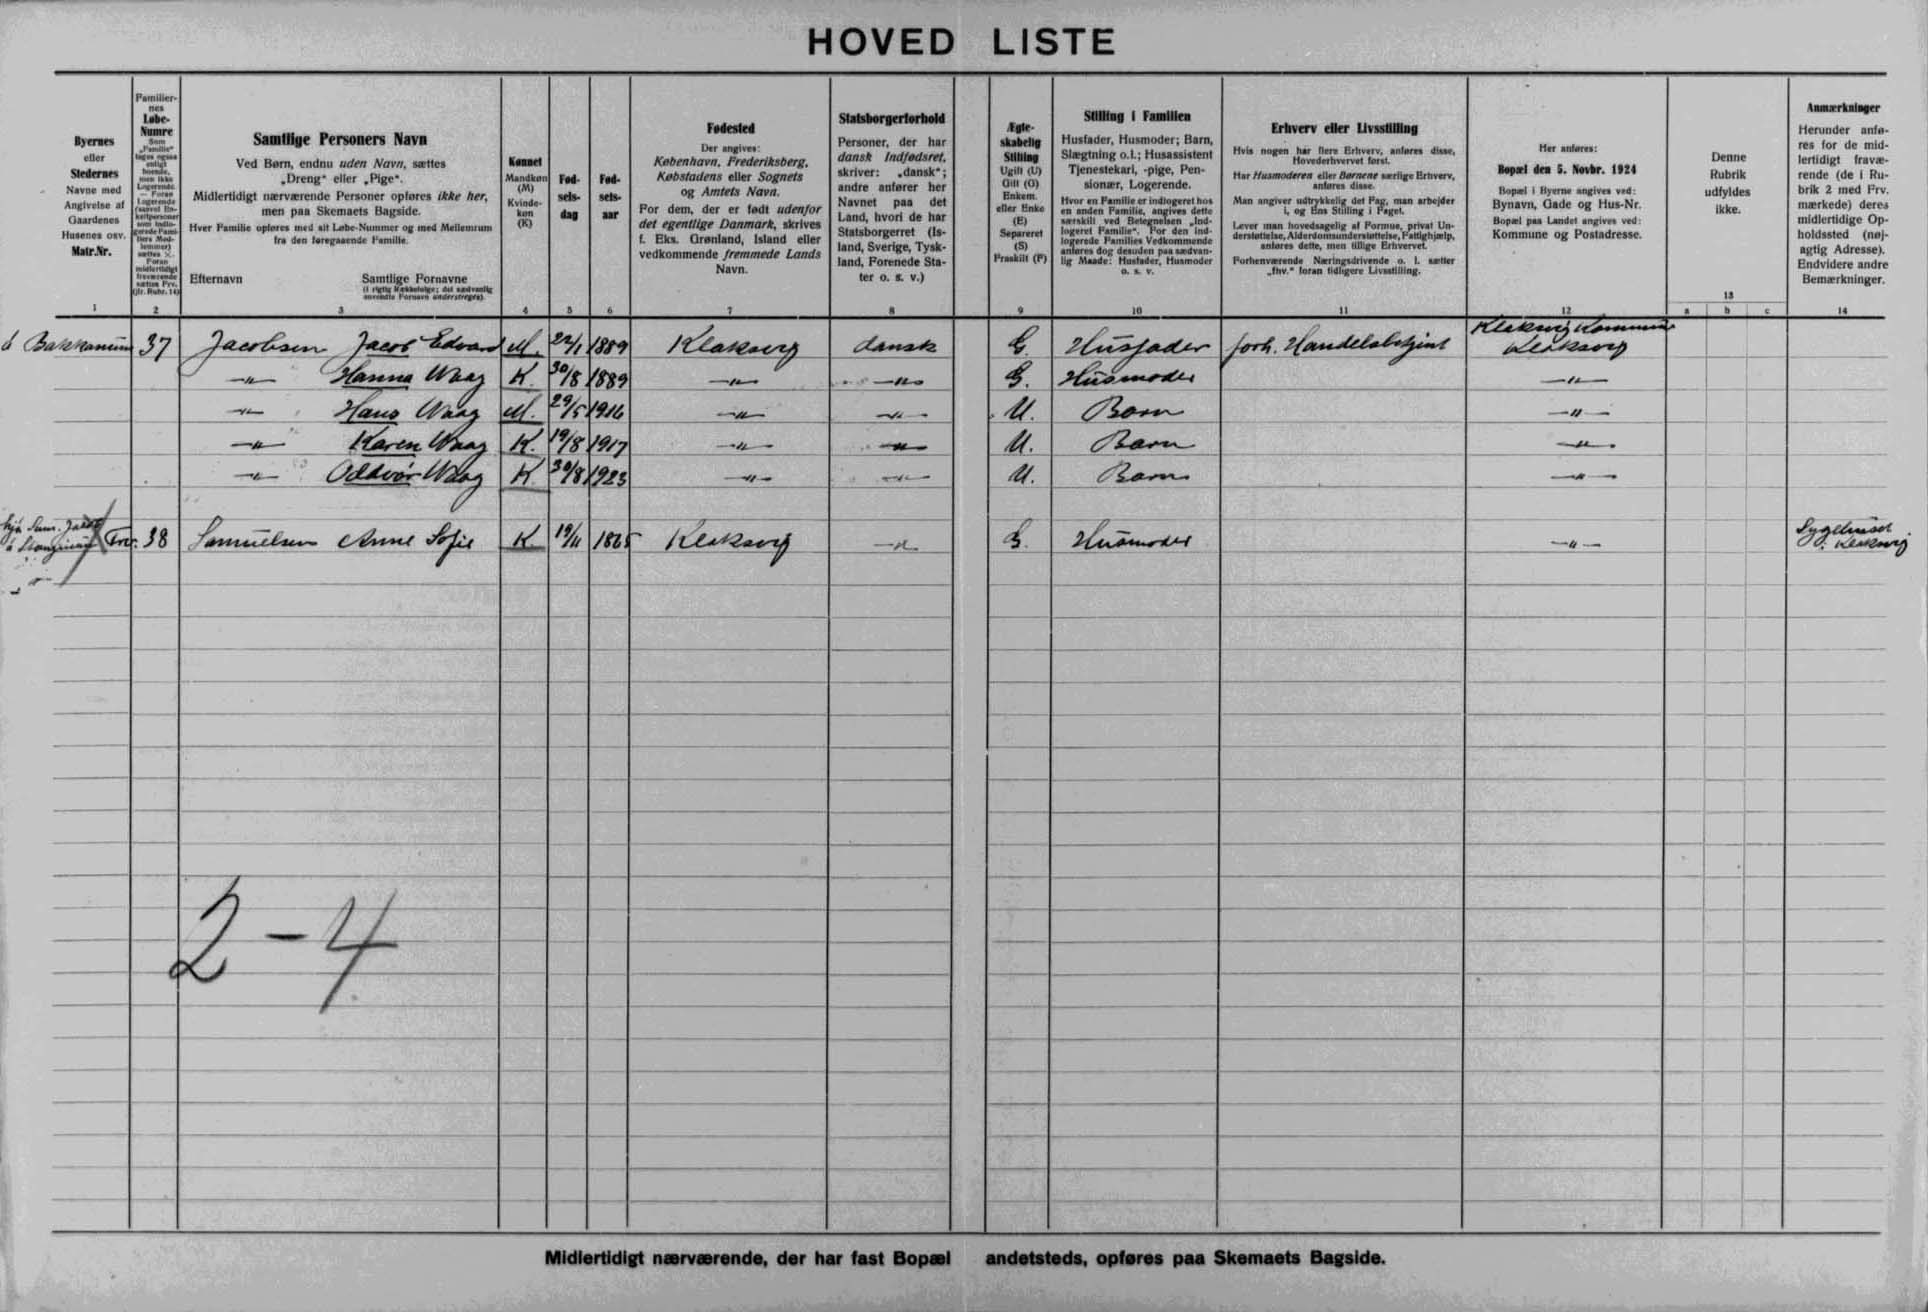 HOVED LISTE
Byernes
eller
Stedernes
Navne med
Angivelse af
Gaardenes
Husenes osv.
Matr.Nr.
1
Familier-
nes
Løbe-
Numre
Som
„Familie“
tages ogsaa
enligt
boende,
men ikke
Logerende.
— Foran
Logerende
(saavel En-
keltpersoner
som indlo-
gerede Fami-
liers Med-
lemmer)
sættes ×.
Foran
midlertidigt
fraværende
sættes Frv.
(jfr. Rubr. 14)
2
Samtlige Personers Navn
Ved Børn, endnu uden Navn, sættes
„Dreng“ eller „Pige“.
Midlertidigt nærværende Personer opføres ikke her,
men paa Skemaets Bagside.
Hver Familie opføres med sit Løbe-Nummer og med Mellemrum
fra den foregaaende Familie.
Efternavn Samtlige Fornavne
(i rigtig Rækkefølge; det sædvanlig
anvendte Fornavn understreges).
3
Kønnet
Mandkøn
(M)
Kvinde-
køn
(K)
4
Fød-
sels-
dag
5
Fød-
sels-
aar
6
Fødested
Der angives:
København, Frederiksberg,
Købstadens eller Sognets
og Amtets Navn.
For dem, der er født udenfor
det egentlige Danmark, skrives
f. Eks. Grønland, Island eller
vedkommende fremmede Lands
Navn.
7
Statsborgerforhold
Personer, der har
dansk Indfødsret,
skriver: „dansk“;
andre anfører her
Navnet paa det
Land, hvori de har
Statsborgerret (Is-
land, Sverige, Tysk-
land, Forenede Sta-
ter o. s. v.)
8
Ægte-
skabelig
Stilling
Ugift (U)
Gift (G)
Enkem.
eller Enke
(E)
Separeret
(S)
Fraskilt (F)
9
Stilling i Familien
Husfader, Husmoder; Barn,
Slægtning o.l.; Husassistent
Tjenestekarl, -pige, Pen-
sionær, Logerende.
Hvor en Familie er indlogeret hos
en anden Familie, angives dette
særskilt ved Betegnelsen „Ind-
logeret Familie“. For den ind-
logerede Families Vedkommende
anføres dog desuden paa sædvan-
lig Maade: Husfader, Husmoder
o. s. v.
10
Erhverv eller Livsstilling
Hvis nogen har flere Erhverv, anføres disse,
Hovederhvervet først.
Har Husmoderen eller Børnene særlige Erhverv,
anføres disse.
Man angiver udtrykkelig det Fag, man arbejder
i, og Ens Stilling i Faget.
Lever man hovedsagelig af Formue, privat Un-
derstøttelse, Alderdomsunderstøttelse, Fattighjælp,
anføres dette, men tillige Erhvervet.
Forhenværende Næringsdrivende o. l. sætter
„fhv.“ foran tidligere Livsstilling.
11
Her anføres:
Bopæl den 5. Novbr. 1924
Bopæl i Byerne angives ved:
Bynavn, Gade og Hus-Nr.
Bopæl paa Landet angives ved:
Kommune og Postadresse.
12
Denne
Rubrik
udfyldes
ikke.
13
a b c
Anmærkninger
Herunder anfø-
res for de mid-
lertidigt fravæ-
rende (de i Ru-
brik 2 med Frv.
mærkede) deres
midlertidige Op-
holdssted (nøj-
agtig Adresse).
Endvidere andre
Bemærkninger.
14
Klaksvig Kommune
á Bakkanum 37 Jacobsen Jacob Edvard M. 22/1 1889 Klaksvig dansk G. Husfader forh. Handelsbetjent Klaksvig
—"— Hanna Waag K. 30/8 1889 —"— —"— G. Husmoder —"—
—"— Hans Waag M. 29/5 1916 —"— —"— U. Barn —"—
—"— Karen Waag K. 19/8 1917 —"— —"— U. Barn —"—
—"— Oddvør Waag K 30/8 1923 —"— —"— U. Barn —"—
Frv. 38 Samuelsen Anne Sofie K 19/11 1865 Klaksvig —"— G. Husmoder —"— Sygehuset
i Klaksvig
2-4
Midlertidigt nærværende, der har fast Bopæl andetsteds, opføres paa Skemaets Bagside.